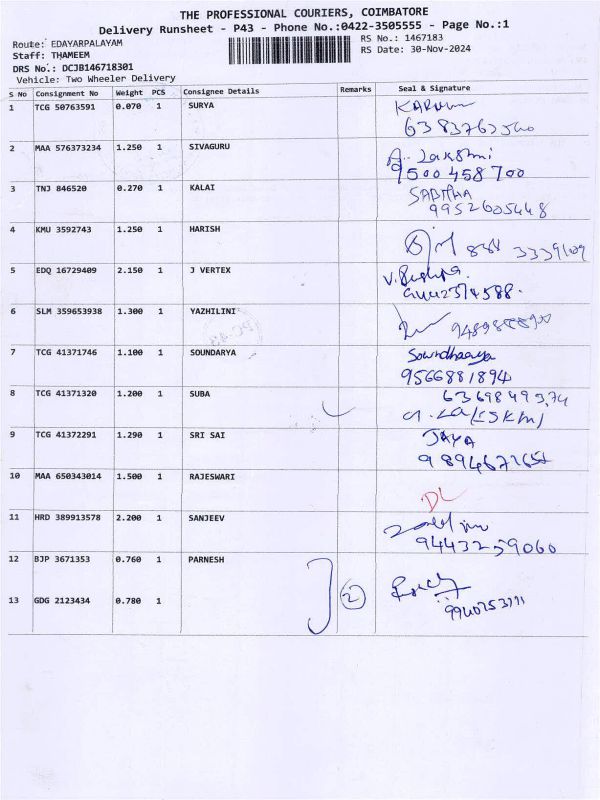 THE PROFESSIONAL COURIERS, COIMBATORE
Delivery Runsheet - P43 - Phone No.:0422-3505555 - Page No.:1
Route: EDAYARPALAYAM
RS No.: 1467183
Staff: THAMEEM
RS Date: 30-Nov-2024
DRS No.: DCJB146718301
Vehicle: Two Wheeler Delivery
S No Consignment No Weight PCS Consignee Details Remarks Seal & Signature
1 TCG 50763591 0.070 1 SURYA
2 MAA 576373234 1.250 1 SIVAGURU A. Lakshmi
9500458700
3 TNJ 846520 0.270 1 KALAI SABITHA
9952605448
4 KMU 3592743 1.250 1 HARISH
5 EDQ 16729409 2.150 1 J VERTEX
6 SLM 359653938 1.300 1 YAZHILINI
7 TCG 41371746 1.100 1 SOUNDARYA Soundhaarya
9566881894
8 TCG 41371320 1.200 1 SUBA
9 TCG 41372291 1.290 1 SRI SAI JAYA
10 MAA 650343014 1.500 1 RAJESWARI DL
11 HRD 389913578 2.200 1 SANJEEV
9443259060
12 BJP 3671353 0.760 1 PARNESH
2
13 GDG 2123434 0.780 1